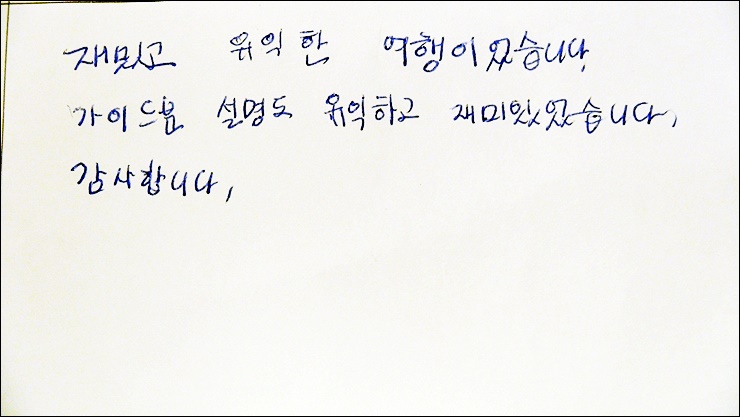 재밌고 유익한 여행이었습니다.
가이드분 설명도 유익하고 재미있었습니다,
감사합니다,